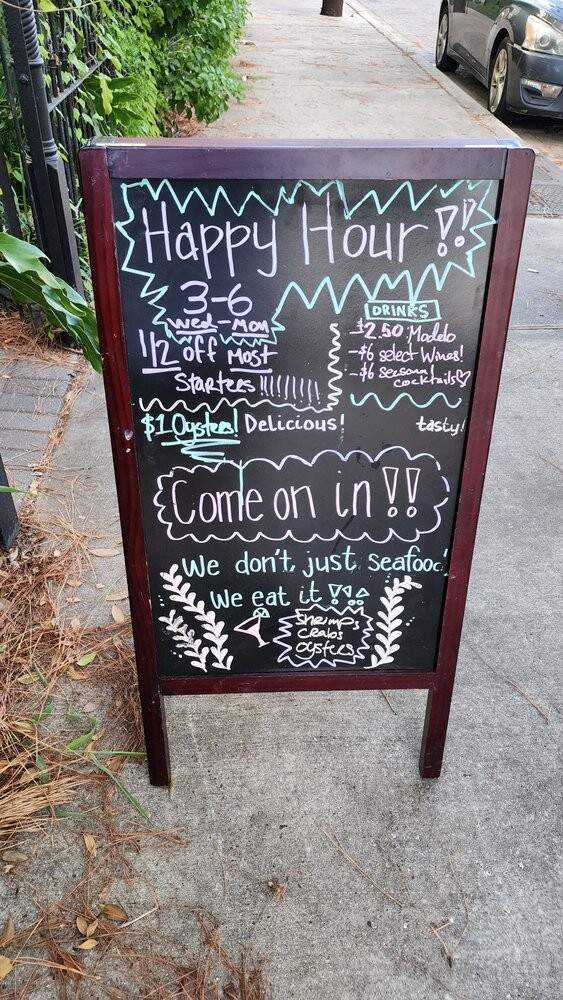 Happy Hour!!
3-6
Wed-Mon
1/2 off Most
Starters!!!!!!!!!
DRINKS
$2.50 Modelo
-$6 select Wines!
-$6 seasonal
cocktails
$1 Oysters! Delicious!
tasty!
Come on in!!
We don't just seafood
We eat it!!!
Shrimps
Crabs
Oysters